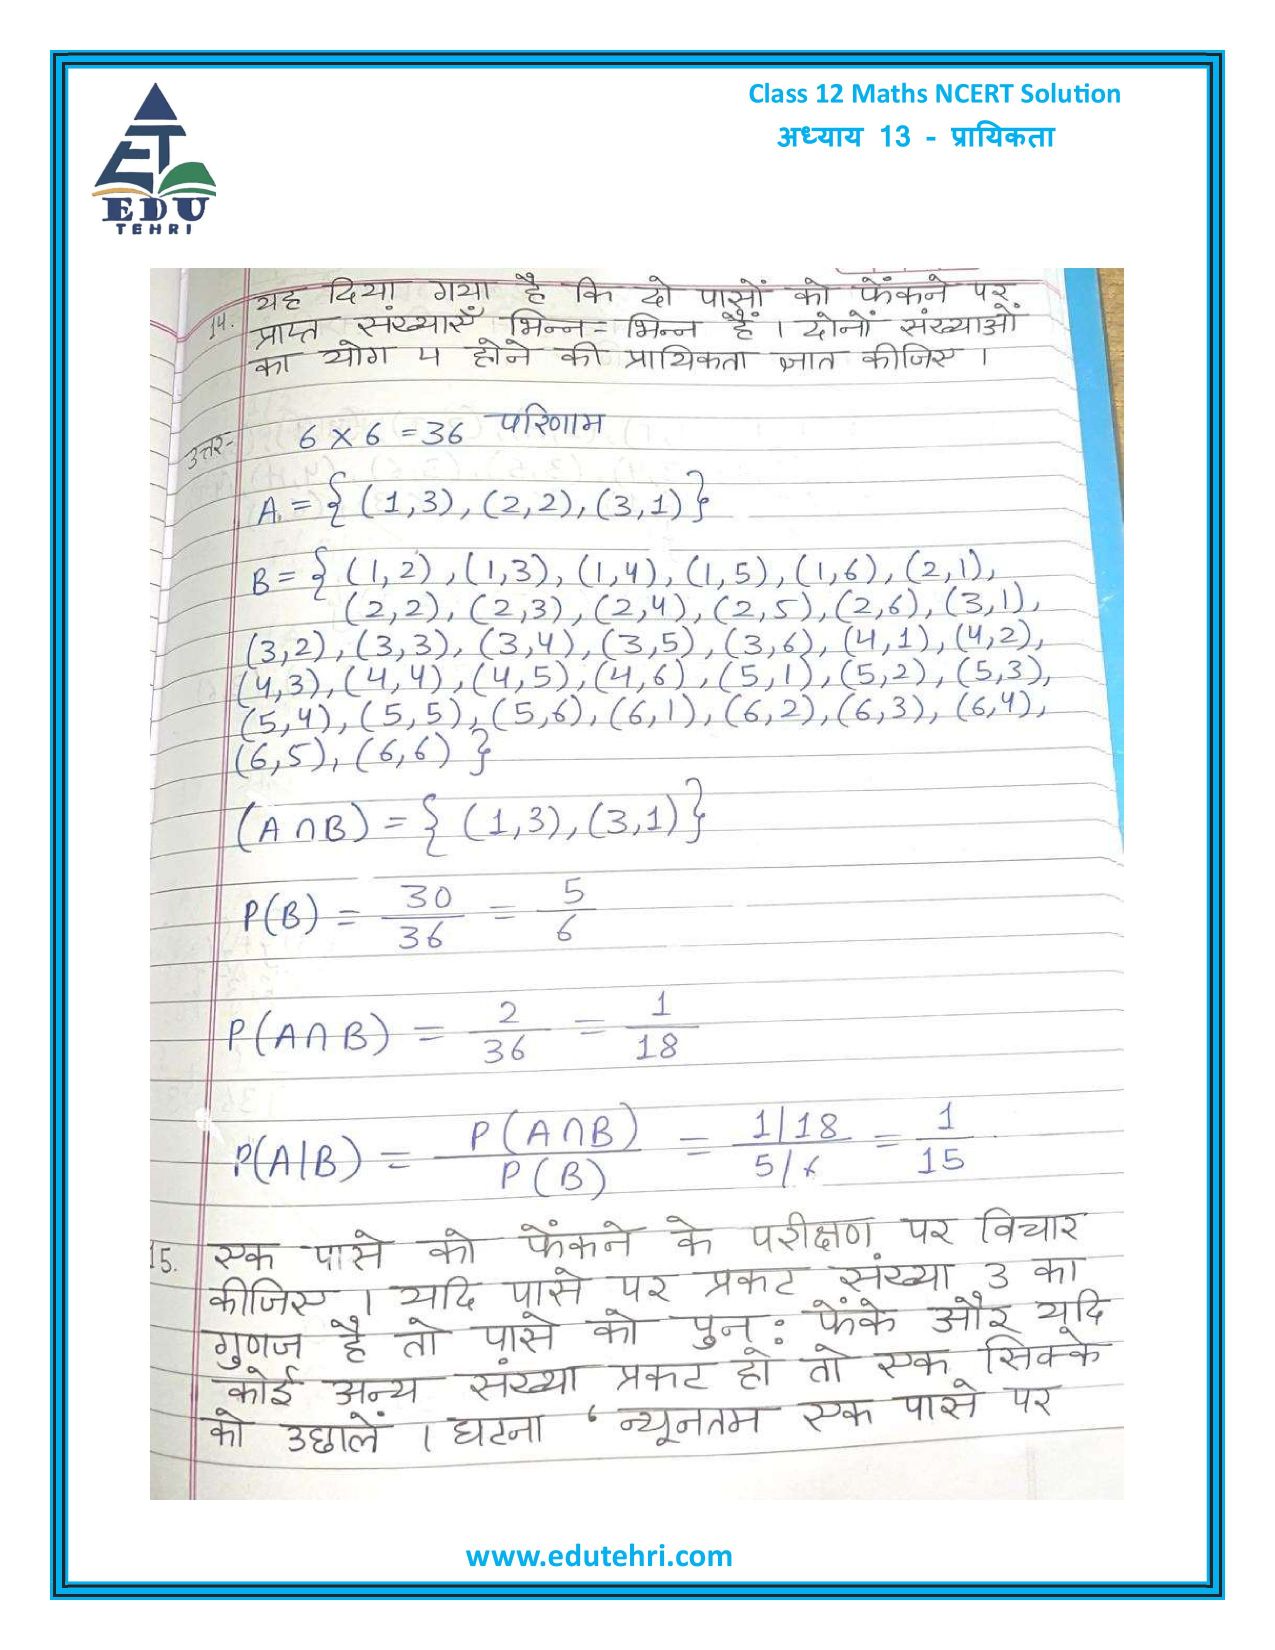 Class 12 Maths NCERT Solution
अध्याय 13 - प्रायिकता
EDU
TEHRI
14. यह दिया गया है कि दो पासों को फेंकने पर
प्राप्त संख्याएँ भिन्न-भिन्न हैं। दोनों संख्याओं
का योग 4 होने की प्रायिकता ज्ञात कीजिए।
उत्तर- 6 × 6 = 36 परिणाम
A = { (1,3), (2,2), (3,1) }
B = { (1,2), (1,3), (1,4), (1,5), (1,6), (2,1),
(2,2), (2,3), (2,4), (2,5), (2,6), (3,1),
(3,2), (3,3), (3,4), (3,5), (3,6), (4,1), (4,2),
(4,3), (4,4), (4,5), (4,6), (5,1), (5,2), (5,3),
(5,4), (5,5), (5,6), (6,1), (6,2), (6,3), (6,4),
(6,5), (6,6) }
(A∩B) = { (1,3), (3,1) }
P(B) = 30/36 = 5/6
P(A∩B) = 2/36 = 1/18
P(A|B) = P(A∩B)/P(B) = 1/18 / 5/6 = 1/15
15. एक पासे को फेंकने के परीक्षण पर विचार
कीजिए। यदि पासे पर प्रकट संख्या 3 का
गुणज है तो पासे को पुन: फेंके और यदि
कोई अन्य संख्या प्रकट हो तो एक सिक्के
को उछालें। घटना ‘न्यूनतम एक पासे पर
www.edutehri.com